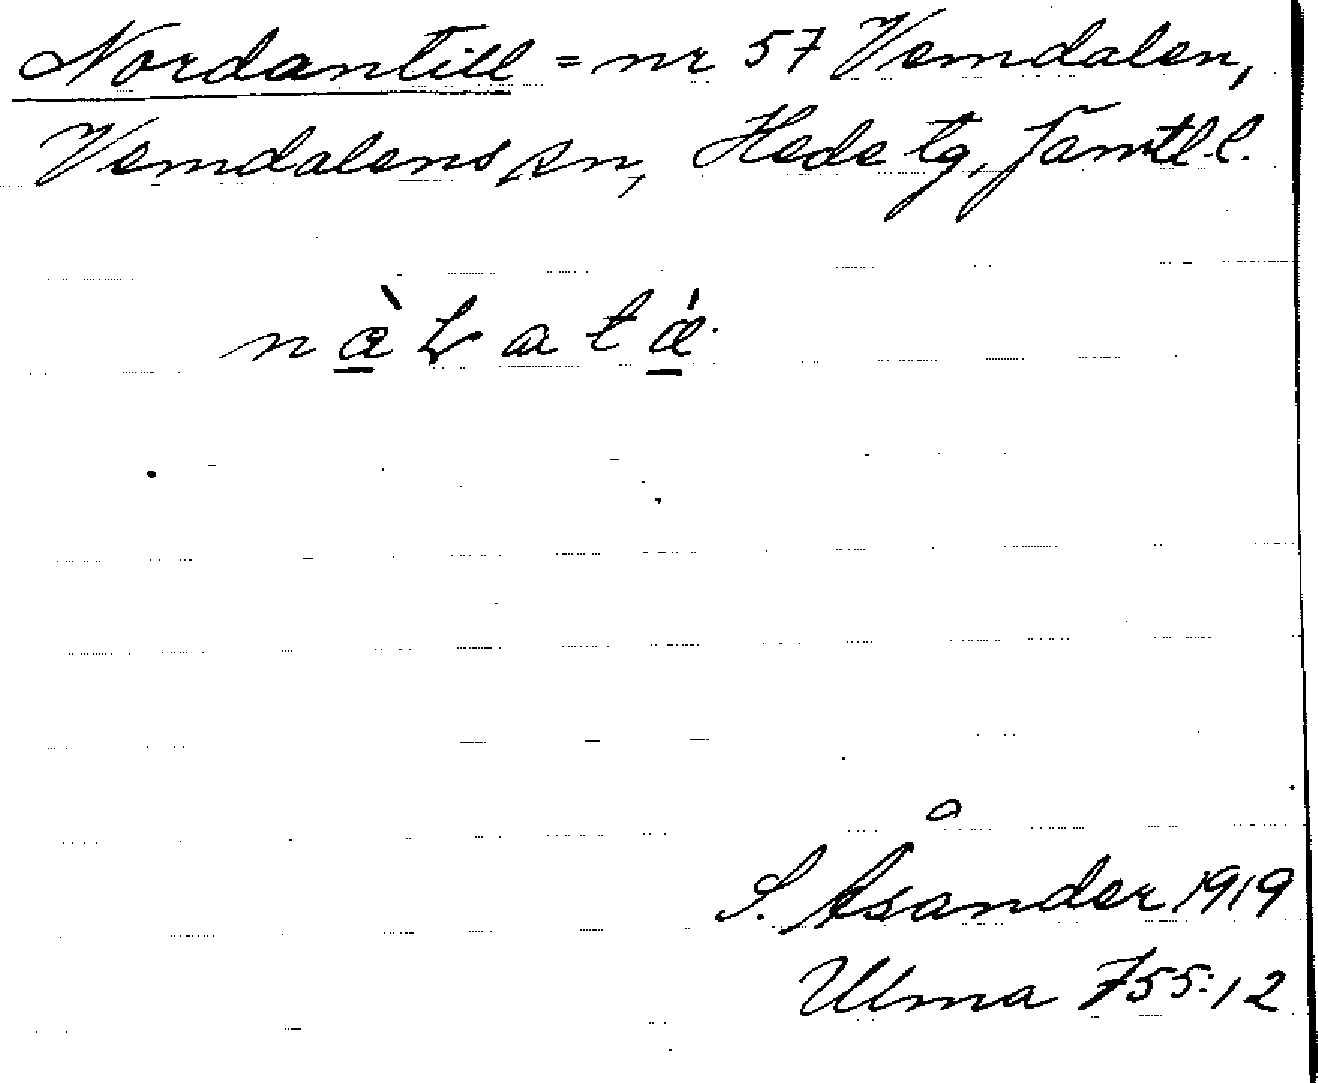 Nordantill = nr 57 Vemdalen,
Vemdalens sn, Hede tg, Jämtl. l.
S. Åsander 1919
Ulma 755:12